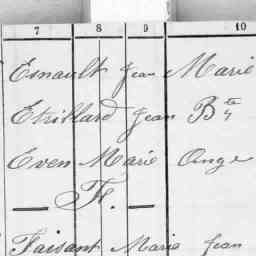 7 8 9 10
Esnault Jean Marie
Etrillard Jean Bte
Even Marie Ange
— F. —
Faisant Marie Jean